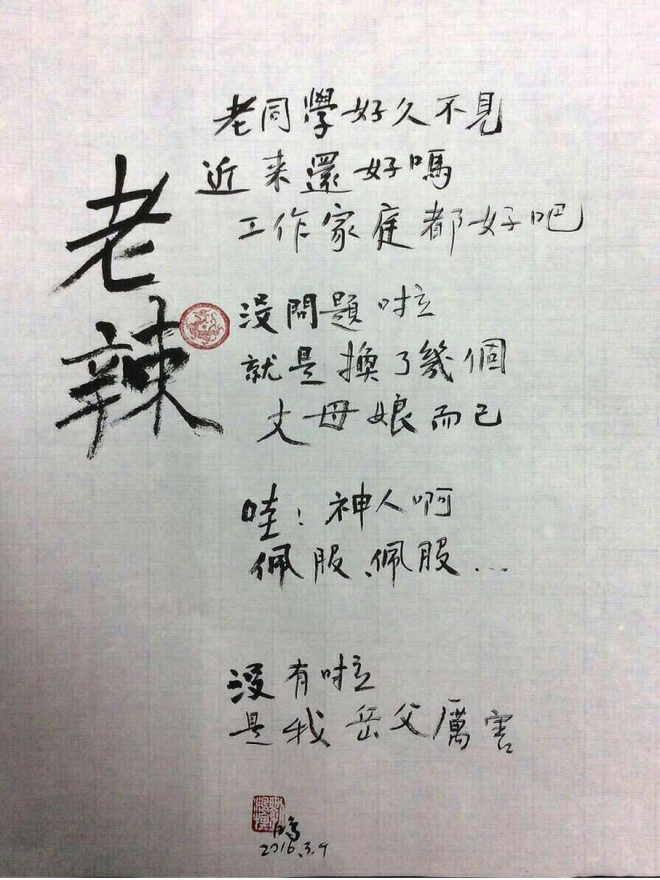 老辣
老同學好久不見
近來還好嗎
工作家庭都好吧
沒問題啦
就是換了幾個
丈母娘而已
哇！神人啊
佩服佩服…
沒有啦
是我岳父厲害
2016.3.9